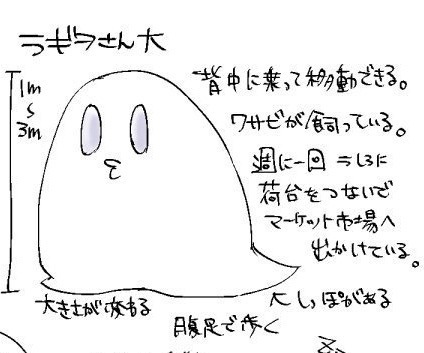 ラギヲさん大
1m
〜
3m
背中に乗って移動できる。
ワサビが飼っている。
週に一回うしろに
荷台をつないで
マーケット市場へ
出かけている。
大きさが変わる
しっぽがある
腹足で歩く